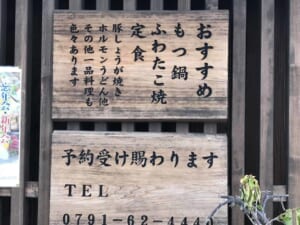 おすすめ
もつ鍋
ふわたこ焼
定食
豚しょうが焼き
ホルモンうどん他
その他一品料理も
色々あります
予約受け賜わります
TEL
0791-62-4440
忘年会・新年会